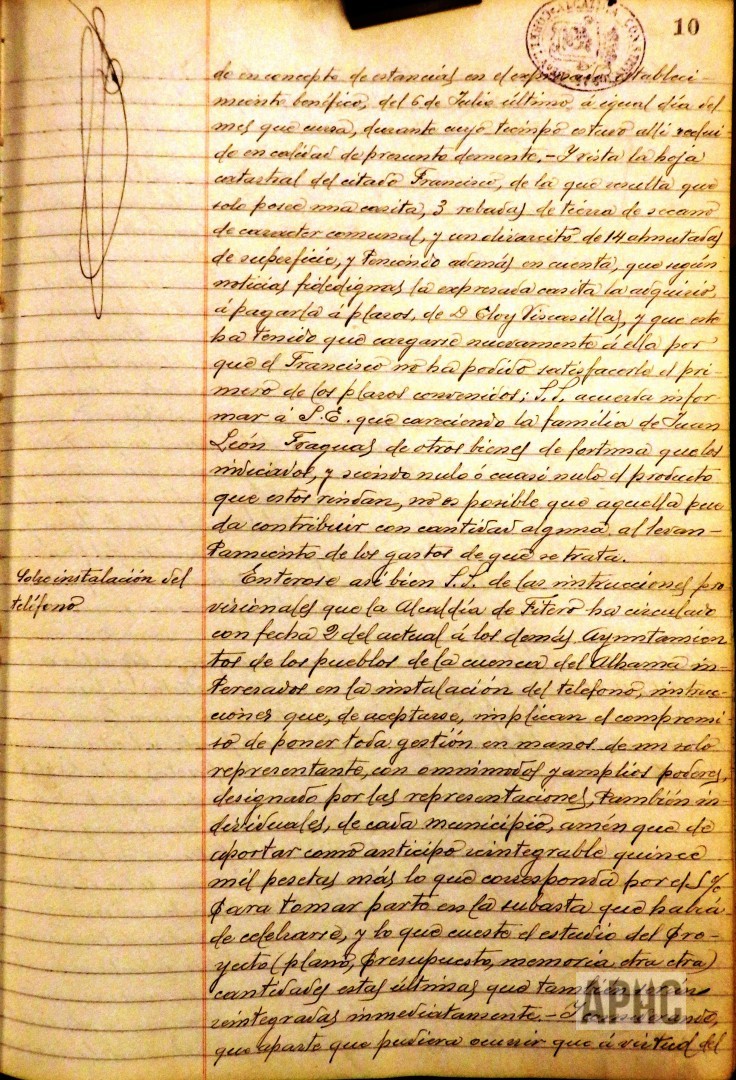 10
de en concepto de estancias en el expresado estableci-
miento benéfico, del 6 de Julio último, á igual día del
mes que cursa, durante cuyo tiempo estuvo allí reclui-
do en calidad de presunto demente.- Y vista la hoja
catastral del citado Francisco, de la que resulta que
solo posee una casita, 3 robadas de tierra de secano
de caracter comunal, y un olivarcito de 14 almutadas
de superficie, y teniendo además en cuenta, que según
noticias fidedignas la expresada casita la adquirió,
á pagarla á plazos, de D. Eloy Viscasillas, y que este
ha tenido que cargarse nuevamente á ella por
que el Francisco no ha podido satisfacerle el pri-
mero de los plazos convenidos; S.S. acuerda infor-
mar á S.E. que careciendo la familia de Juan
León Fraguas de otros bienes de fortuna que los
indiciados, y siendo nulo ó cuasi nulo el producto
que estos rindan, no es posible que aquella pue
da contribuir con cantidad alguna al levan-
tamiento de los gastos de que se trata.
Sobre instalación del
teléfono
Enterose asi bien S.S. de las instrucciones pro
visionales que la Alcaldía de Fitero ha circulado
con fecha 2 del actual á los demás Ayuntamien
tos de los pueblos de la cuenca del Alhama in-
teresados en la instalación del telefono, instruc-
ciones que, de aceptarse, implican el compromi-
so de poner toda gestión en manos de un solo
representante, con omnimodos y amplios poderes,
designado por las representaciones, también in-
dividuales, de cada municipio, amén que de
aportar como anticipo reintegrable quince
mil pesetas más lo que corresponda por el 5 %
para tomar parte en la subasta que habrá
de celebrarse, y lo que cueste el estudio del pro-
yecto (plano, presupuesto, memoria etra etra)
cantidades estas últimas que también serán
reintegradas inmediatamente.- Y
que aparte que pudiera ocurrir que á virtud del
APHC